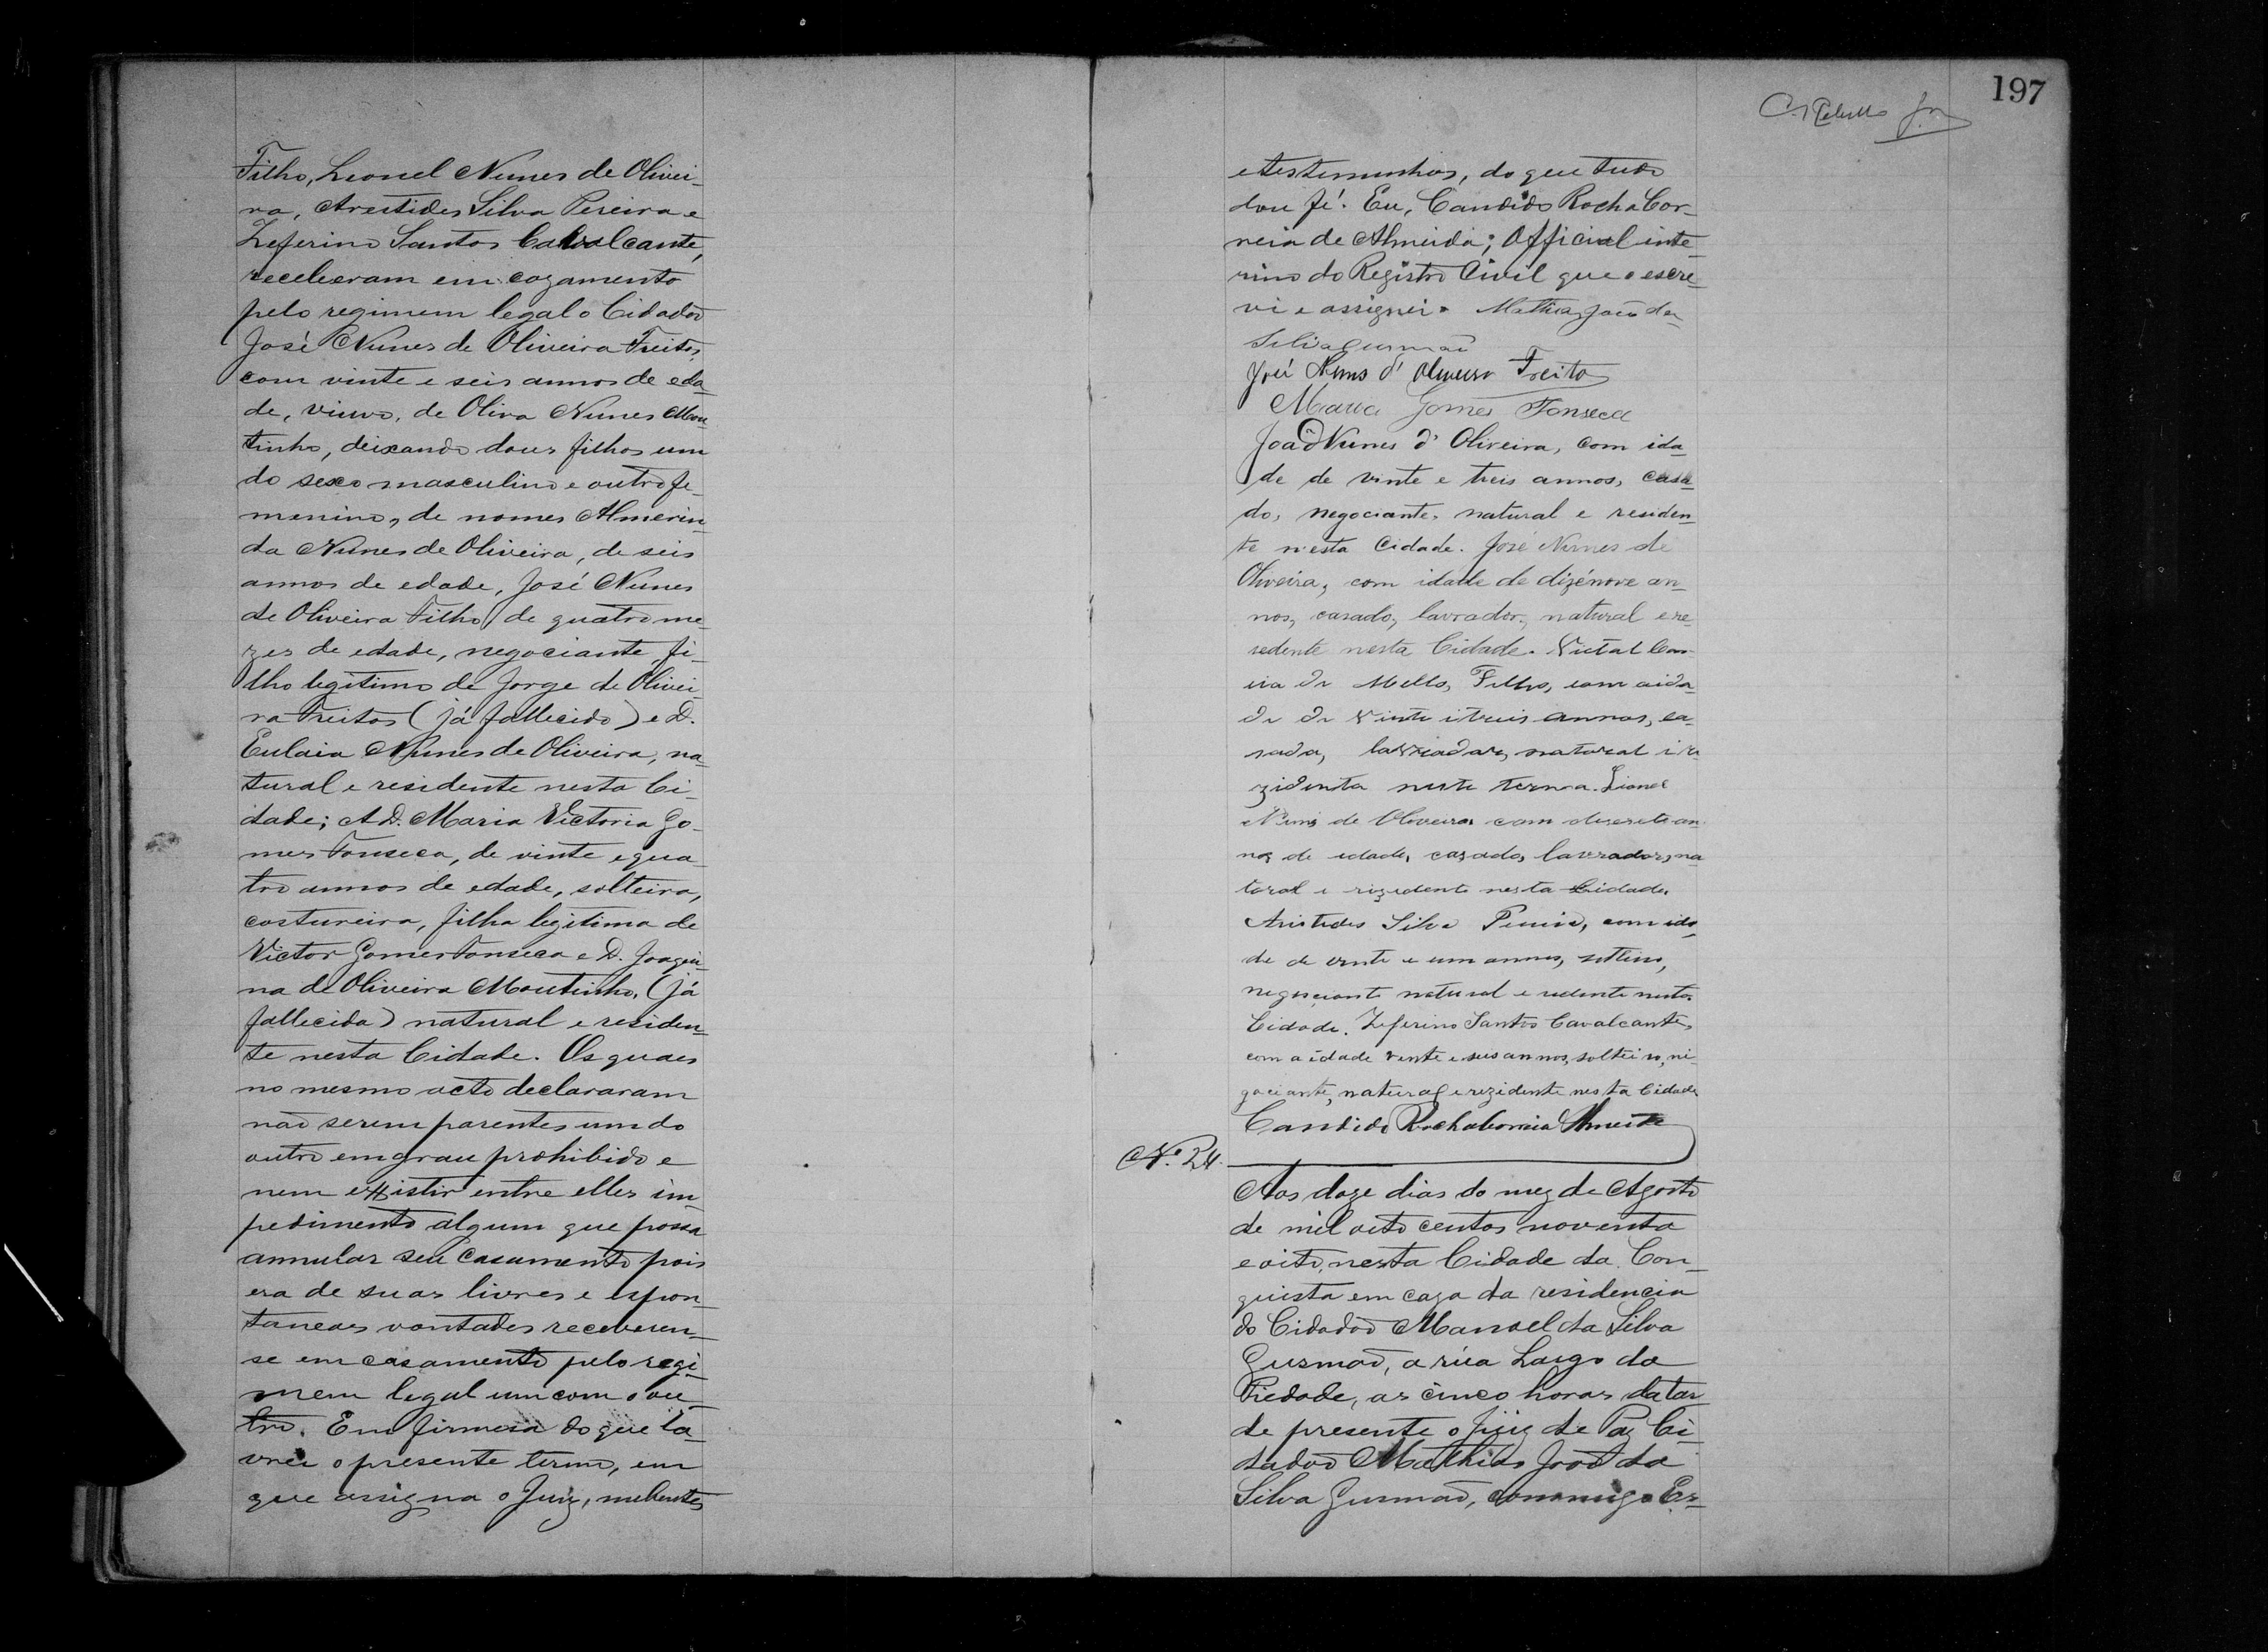 Filho, Leonel Nunes de Olivei-
ra, Arestides Silva Pereira e
Zeferino Santos Cavalcante,
receberam em cazamento
pelo regimem legal o Cidadão
José Nunes de Oliveira Freitas,
com vinte e seis annos de eda-
de, viuvo, de Oliva Nunes Mou-
tinho, deixando dous filhos um
do sexo masculino e outro fe-
menino, de nomes Almerin-
da Nunes de Oliveira, de seis
annos de edade, José Nunes
de Oliveira Filho, de quatro me-
zes de edade, negociante, fi-
lho legitimo de Jorge de Olivei-
ra Freitas (já fallecido) e D.
Eulaia Nunes de Oliveira, na-
tural e residente nesta Ci-
dade; A D. Maria Victoria Go-
mes Fonseca, de vinte e qua-
tro annos de edade, solteira,
costureira, filha legitima de
Victor Gomes Fonseca e D. Joaqui-
na de Oliveira Moutinho, (já
fallecida) natural e residen-
te nesta Cidade. Os quaes
no mesmo acto declararam
não serem parentes um do
outro em grau prohibido e
nem existir entre elles im-
pedimento algum que possa
annular seu casamento pois
era de suas livres e espon-
taneas vontades receberem-
se em casamento pelo regi-
mem legal um com o ou-
tro. Em firmesa do que la-
vrei o presente termo, em
que assigna o Juiz, nubentes
197
e testemunhas, do que tudo
dou fé. Eu, Candido Rocha Cor-
reia de Almeida; Official inte-
rino do Registro Civil que o escre-
vi e assignei. Mathias João da
Silva Gusmão
José Nunes d' Oliveira Freitas
Maria Gomes Fonseca
João Nunes d' Oliveira, com ida-
de de vinte e treis annos, casa-
do, negociante, natural e residen-
te n'esta Cidade. José Nunes de
Oliveira, com idade de dizénove an-
nos, casado, lavrador, natural e re-
sedente nesta Cidade. Victal
de Mello, Filho, com a ida-
de de vinte e treis annos, ca-
sado, natural i re-
zidente neste termo. Lionel
Nunes de Oliveira com an-
nos de edade, cazado, lavrador, na-
toral e rizedente nesta Cidade
Aristides Silva Pereira, com ida-
de de vinte e um annos, solteiro,
negociante natural e nesta
Cidade. Zeferino Santos Cavalcante,
com a idade vente e seis annos, solteiro, ni-
gociante, natural e rezidente nesta Cidade
Candido Rocha Correia Almeida
N.º 24.
Aos doze dias do mez de Agosto
de mil oito centos noventa
e oito, nesta Cidade da Con-
quista em caza da residencia
do Cidadão Manoel da Silva
Gusmão, a rúa Largo da
Piedade, as cinco horas da tar-
de presente o Juiz de Paz Ci-
dadão Mathias João da
Silva Gusmão, commigo Es-